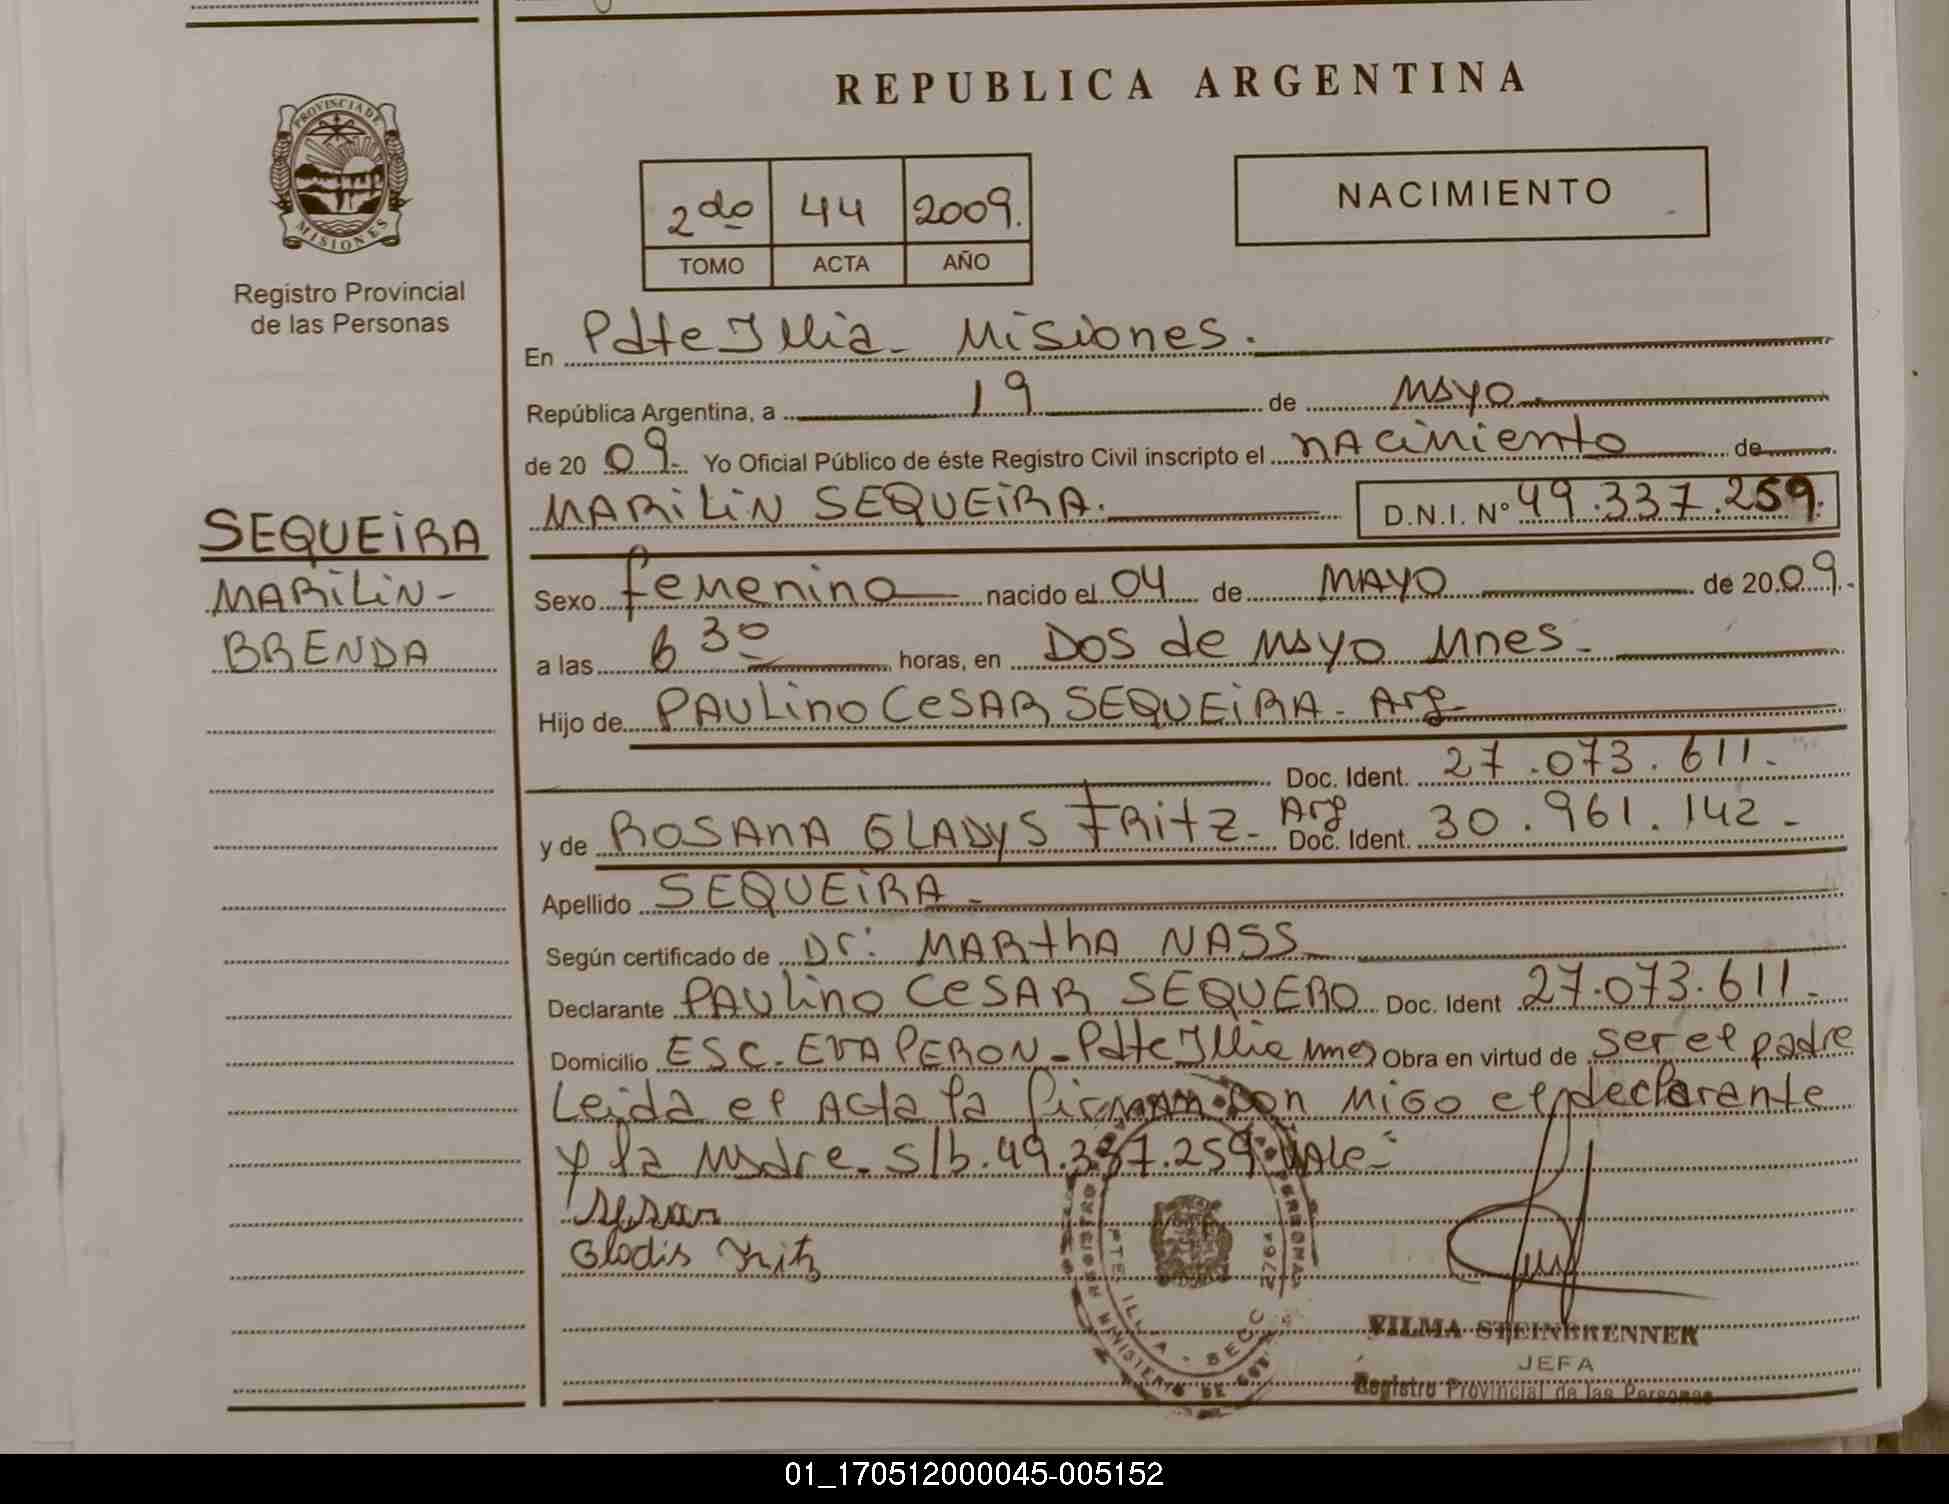 REPUBLICA ARGENTINA
PROVINCIA DE
MISIONES
Registro Provincial
de las Personas
2do 44 2009.
TOMO ACTA AÑO
NACIMIENTO
En Pdte Illia - Misiones.
República Argentina, a 19 de Mayo.
de 20 09. Yo Oficial Público de éste Registro Civil inscripto el nacimiento de
MARILIN SEQUEIRA. D.N.I. Nº 49.337.259.
SEQUEIRA
MARILIN-
BRENDA
Sexo femenino nacido el 04 de MAYO de 20 09.
a las 6 30 horas, en DOS de MAYO Mnes.
Hijo de PAULINO CESAR SEQUEIRA - Arg
Doc. Ident. 27.073.611.
y de ROSANA GLADYS FRITZ - Arg Doc. Ident. 30.961.142 -
Apellido SEQUEIRA -
Según certificado de Dr: MARTHA NASS
Declarante PAULINO CESAR SEQUERO Doc. Ident 27.073.611.
Domicilio ESC. EVA PERON - Pdte Illia Mnes Obra en virtud de ser el padre
Leida el Acta la firman con migo el declarante
y la Madre - s/b. 49.337.259. Vale -
Glodis Fritz
PTE. ILLIA - SECC. 2764
MINISTERIO DE GOB
VILMA STEINBRENNER
JEFA
Registro Provincial de las Personas
01_170512000045-005152